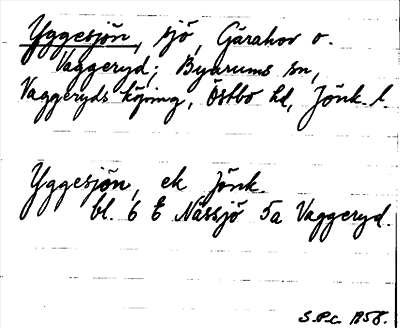 Yggesjön, sjö, Gärahov o.
Vaggeryd; Byarums sn,
Vaggeryds köping, Östbo hd, Jönk. l.
Yggesjön, ek Jönk.
bl. 6 E Nässjö 5a Vaggeryd.
S.P.c. 1958.